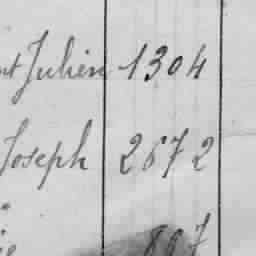 nt Julien 1304
Joseph 2672
807